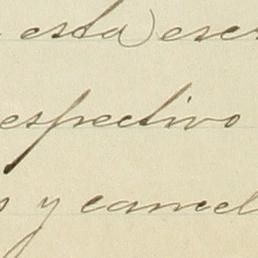 esta
espectivo
y cancel